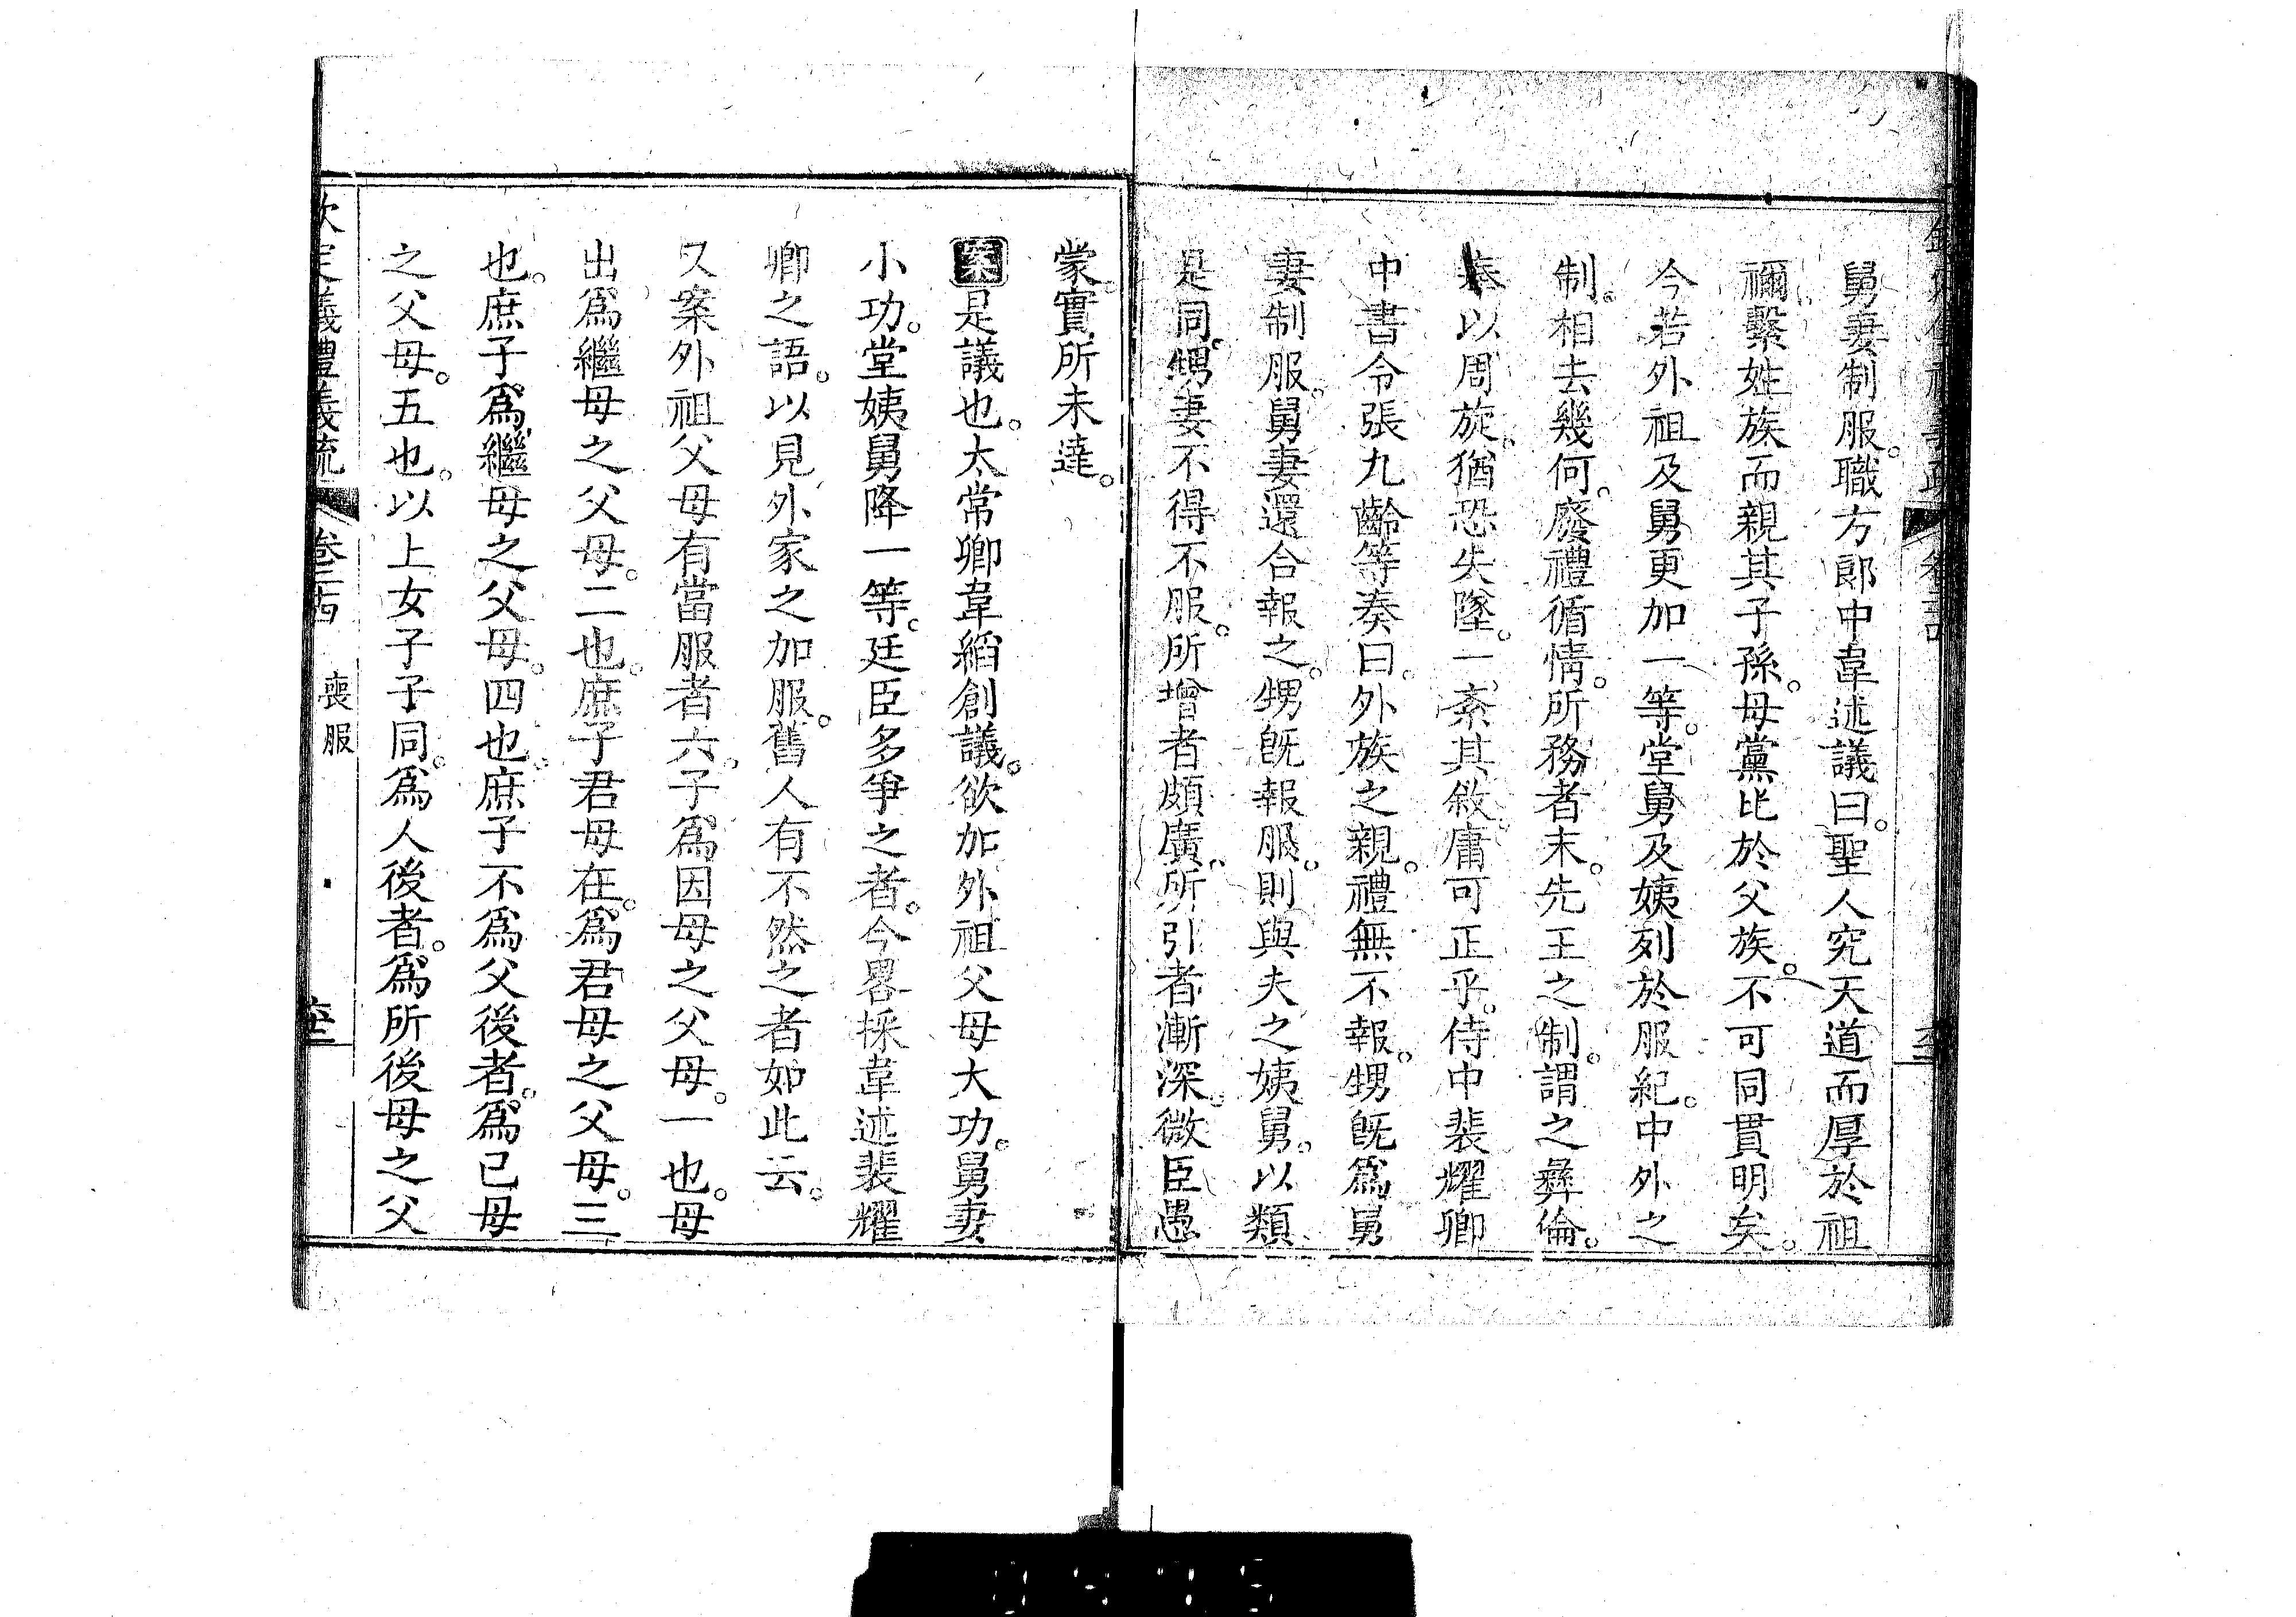 舅妻制服。職方郎中韋述議曰。聖人究天道而厚於祖
禰。繫姓族而親其子孫。母黨比於父族。不可同貫明矣。
今若外祖及舅更加一等。堂舅及姨列於服紀。中外之
制。相去幾何。廢禮循情。所務者末。先王之制。謂之彝倫。
奉以周旋。猶恐失墜。一紊其敘。庸可正乎。侍中裴耀卿
中書令張九齡等奏曰。外族之親。禮無不報。甥旣爲舅
妻制服。舅妻還合報之。甥旣報服。則與夫之姨舅。以類
是同。甥妻不得不服。所增者頗廣。所引者漸深。微臣愚
蒙。實所未達。
案是議也。太常卿韋縚創議。欲加外祖父母大功。舅妻
小功。堂姨舅降一等。廷臣多爭之者。今畧採韋述裴耀
卿之語。以見外家之加服。舊人有不然之者如此云。
又案外祖父母有當服者六。子爲因母之父母。一也。母
出爲繼母之父母。二也。庶子君母在。爲君母之父母。三
也。庶子爲繼母之父母。四也。庶子不爲父後者。爲己母
之父母。五也。以上女子子同。爲人後者。爲所後母之父
欽定義禮義疏 卷二十四 喪服